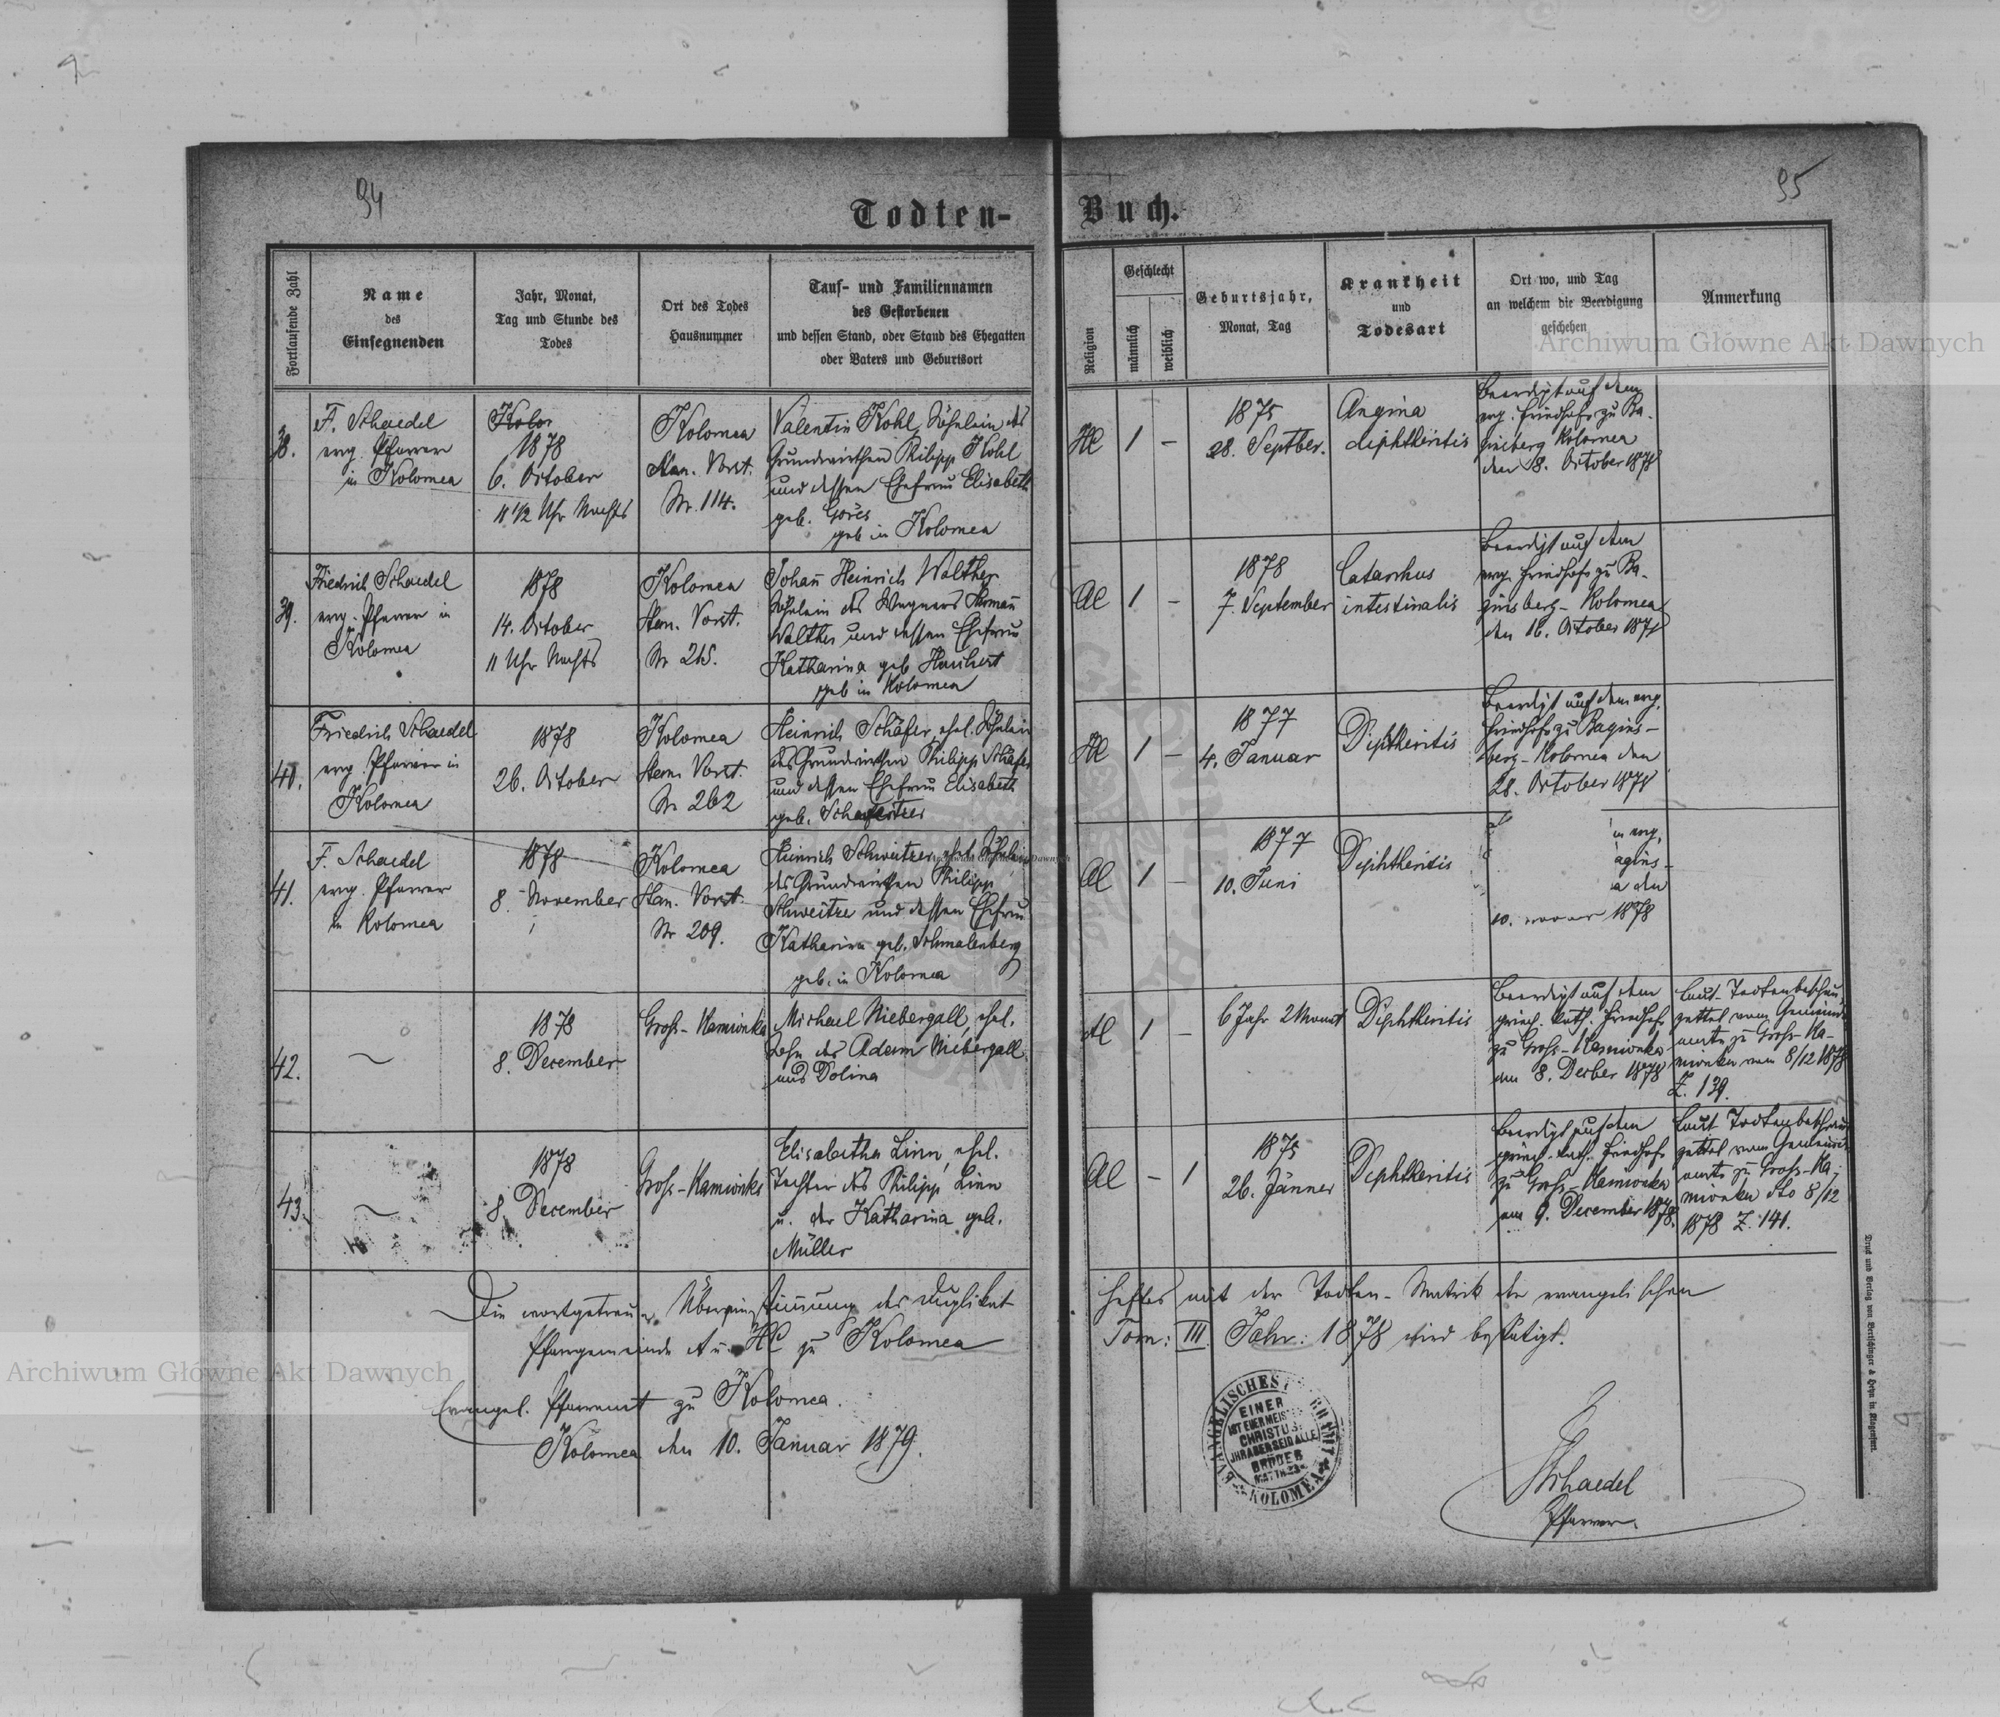 94
95
Todten-Buch.
Fortlaufende Zahl
Name
des
Einsegnenden
Jahr, Monat,
Tag und Stunde des
Todes
Ort des Todes
Hausnummer
Tauf- und Familiennamen
des Gestorbenen
und dessen Stand, oder Stand des Ehegatten
oder Vaters und Geburtsort
Religion
Geschlecht
männlich
weiblich
Geburtsjahr,
Monat, Tag
Krankheit
und
Todesart
Ort wo, und Tag
an welchem die Beerdigung
geschehen
Anmerkung
38.
F. Schaedel
evg. Pfarrer
in Kolomea
Kolom
1878
6. October
11 1/2 Uhr Nachts
Kolomea
Stan. Vorst.
Nr. 114.
Valentin Kohl, Söhnlein des
Grundwirthen Philipp Kohl
und dessen Ehefrau Elisabeth
geb. Göres
geb. in Kolomea
HC
1
–
1875
28. Septber.
Angina
diphtheritis
Beerdigt auf dem
evg. Friedhofe zu Ba-
ginsberg Kolomea
den 8. October 1878
39.
Friedrich Schaedel
evg. Pfarrer in
Kolomea
1878
14. October
11 Uhr Nachts
Kolomea
Stan. Vorst.
Nr 215.
Johañ Heinrich Walther
Söhnlein des Wagners Hermañ
Walther und dessen Ehefrau
Katharina geb.
geb in Kolomea
AC
1
–
1878
7. September
Catarrhus
intestinalis
Beerdigt auf dem
evg. Friedhofe zu Ba-
ginsberg – Kolomea
den 16. October 1878
40.
Friedrich Schaedel
evg. Pfarrer in
Kolomea
1878
26. October
Kolomea
Stan. Vorst.
Nr. 262
Heinrich Schäfer, ehel. Söhnlein
des Grundwirthen Philipp Schäfer
und dessen Ehefrau Elisabeth
geb.
HC
1
–
1877
4. Januar
Diphtheritis
Beerdigt auf dem evg.
Friedhofe zu Bagins-
berg – Kolomea den
28. October 1878
41.
F. Schaedel
evg. Pfarrer
in Kolomea
1878
8. November
Kolomea
Stan. Vorst.
Nr 209.
Heinrich Schweitzer, ehel. Söhnlein
des Grundwirthen Philipp
Schweitzer und dessen Ehefrau
Katharina geb. Schmalenberg
geb. in Kolomea
AC
1
–
1877
10. Juni
Diphtheritis
evg.
agins-
a den
10. 1878
42.
1878
8. December
Gross-Kamionka
Michael Niebergall, ehel.
Sohn des Adam Niebergall
aus Dolina
AC
1
–
6 Jahr 2 Monat
Diphtheritis
Beerdigt auf dem
griech. kath. Friedhofe
zu Gross-Kamionka
am 8. Decber 1878
Laut Todtenbeschau-
zettel vom Gemeinde-
amte zu Gross-Ka-
mionka vom 8/12 1878
Z. 139.
43.
1878
8. December
Gross-Kamionka
Elisabetha Linn, ehel.
Tochter des Philipp Linn
u. der Katharina geb.
Müller
AC
–
1
1875
26. Jänner
Diphtheritis
Beerdigt auf dem
griech. kath. Friedhofe
zu Gross-Kamionka
am 9. December 1878.
Laut Todtenbeschau-
zettel vom Gemeinde-
amte zu Gross-Ka-
mionka dto 8/12
1878 Z. 141.
Die wortgetreue Übereinstimmung des Duplikat-
Heftes mit der Todten-Matrik der evangelischen
Pfarrgemeinde A u. HC zu Kolomea
Tom: III. Jahr: 1878 wird bestätigt.
Evangel. Pfarramt zu Kolomea.
Kolomea den 10. Januar 1879.
EINER
IST EUER MEIS
CHRISTUS
IHR ABER SEID ALLE
BRÜDER
MATTH. 23
EVANGELISCHES
KOLOMEA
Schaedel
Pfarrer
Druck und Verlag von Bertschinger & Heyn in Klagenfurt.
Archiwum Główne Akt Dawnych
Archiwum Główne Akt Dawnych